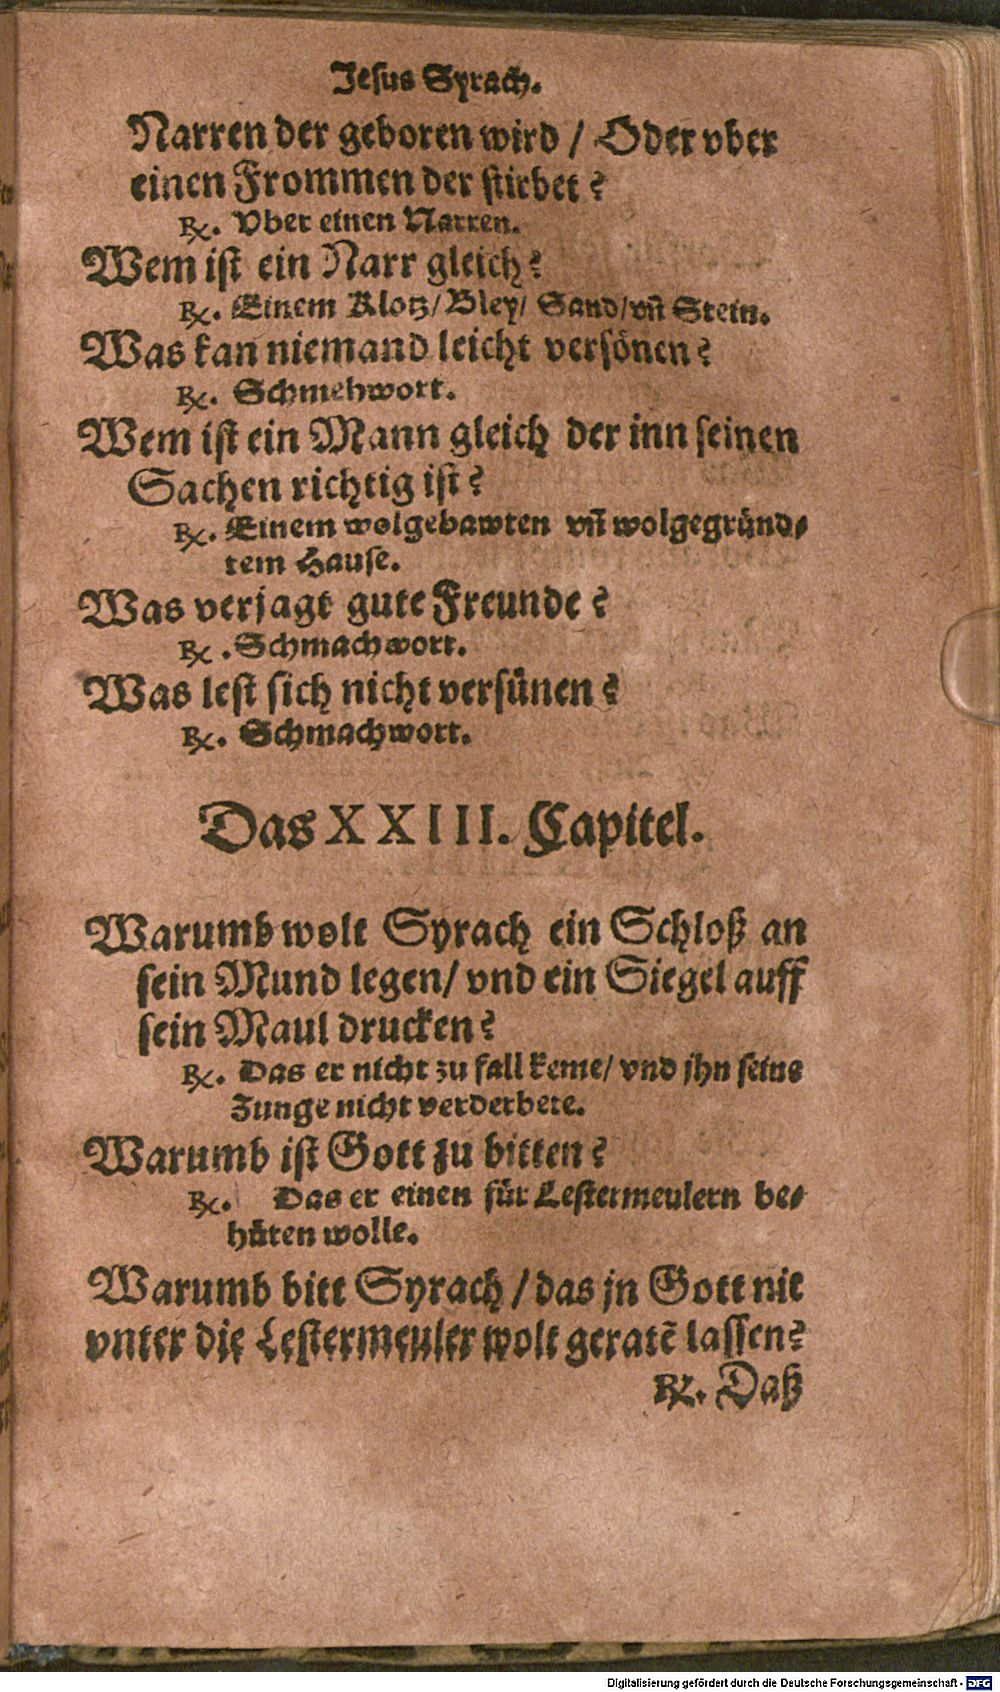 Jesus Syrach.
Narren der geboren wird / Oder vber
einen Frommen der stirbet?
℞. Vber einen Narren.
Wem ist ein Narr gleich?
℞. Einem Klotz/ Bley/ Sand/ vñ Stein.
Was kan niemand leicht versönen?
℞. Schmehwort.
Wem ist ein Mann gleich der inn seinen
Sachen richtig ist?
℞. Einem wolgebawten vñ wolgegründ-
tem Hause.
Was verjagt gute Freunde?
℞. Schmachwort.
Was lest sich nicht versünen?
℞. Schmachwort.
Das XXIII. Capitel.
Warumb wolt Syrach ein Schloß an
sein Mund legen/ vnd ein Siegel auff
sein Maul drucken?
℞. Das er nicht zu fall keme/ vnd jhn seine
Zunge nicht verderbete.
Warumb ist Gott zu bitten?
℞. Das er einen für Lestermeulern be-
hüten wolle.
Warumb bitt Syrach / das jn Gott nit
vnter die Lestermeuler wolt geratē lassen?
℞. Daß
Digitalisierung gefördert durch die Deutsche Forschungsgemeinschaft - DFG